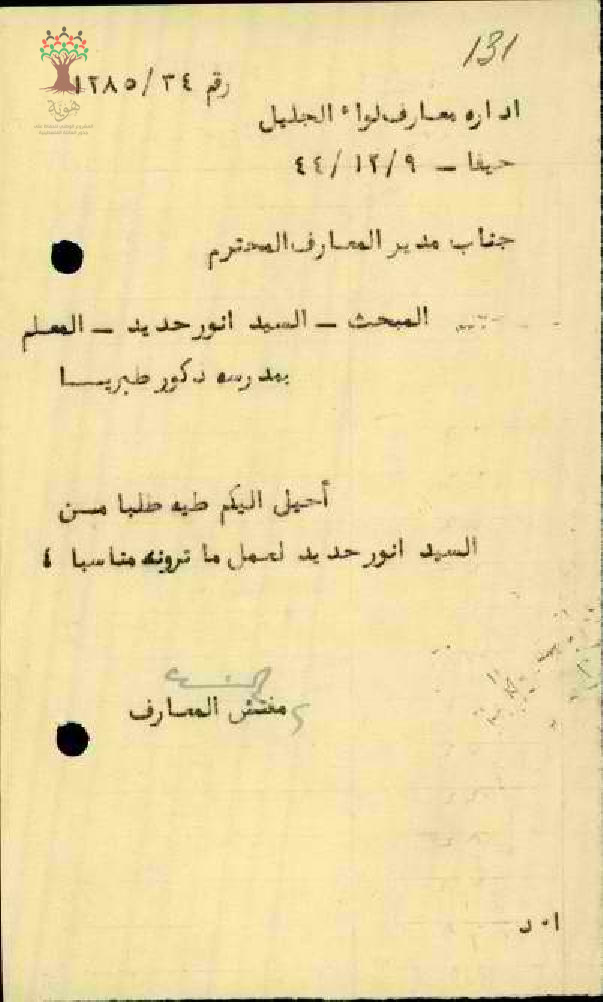 131
هوية
رقم ١٢٨٥/٣٤
اداره معارف لواء الجليل
حيفا – ٤٤/١٢/٩
جناب مدير المعارف المحترم
المبحث – السيد انور حديد – المعلم
بمدرسه ذكور طبريا
أحيل اليكم طيه طلبا من
السيد انور حديد لعمل ما ترونه مناسبا ٤
مفتش المعارف
ا٠ د